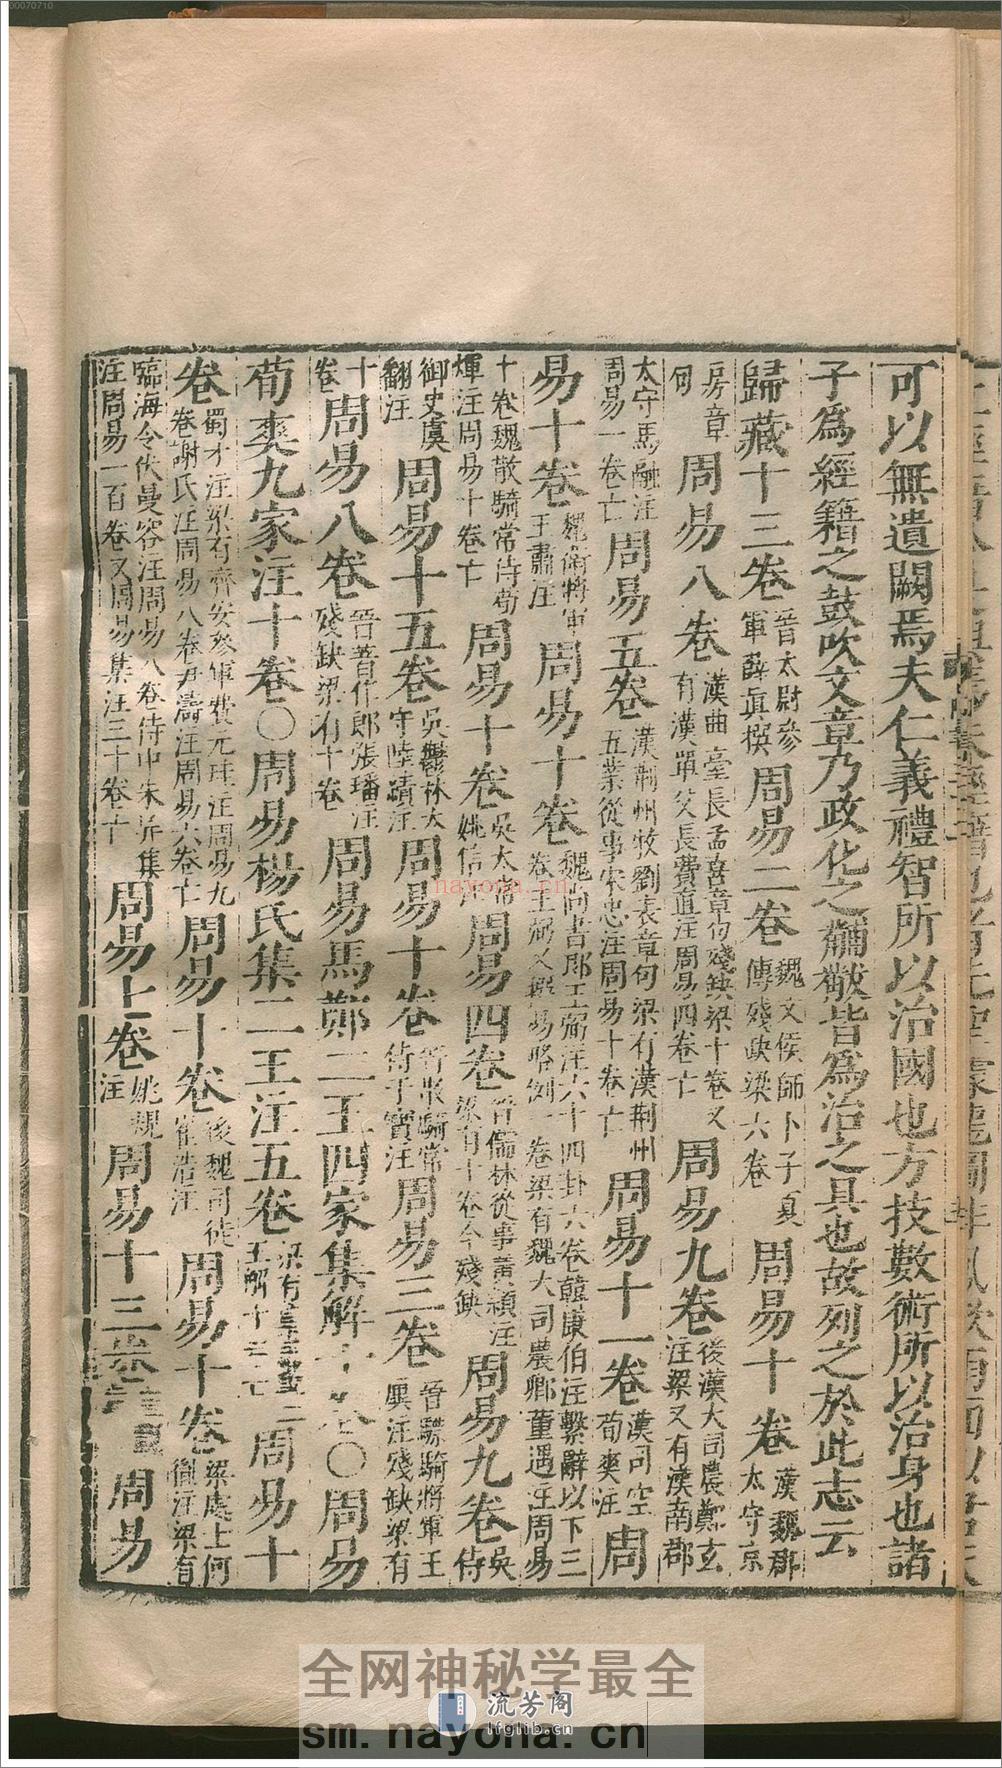 可以無遺闕焉夫仁義禮智所以治國也方技數術所以治身也諸
子為經籍之鼓吹文章乃政化之黼黻皆為治之具也故列之於此志云
歸藏十三卷晉太尉參軍薛眞撰周易二卷魏文侯師卜子夏傳殘缺梁六卷周易十卷漢魏郡太守京
房章句周易八卷漢曲臺長孟喜章句殘缺梁十卷又有漢單父長費直注周易四卷亡周易九卷後漢大司農鄭玄注梁又有漢南郡
太守馬融注周易一卷亡周易五卷漢荆州牧劉表章句梁有漢荆州五業從事宋忠注周易十卷亡周易十一卷漢司空荀爽注周
易十卷魏衛將軍王肅注周易十卷魏尚書郎王弼注六十四卦六卷韓康伯注繫辭以下三卷王弼又撰易略例一卷梁有魏大司農卿董遇注周易
十卷魏散騎常侍荀煇注周易十卷亡周易十卷吳太常姚信注周易四卷晉儒林從事黃穎注梁有十卷今殘缺周易九卷吳侍
御史虞翻注周易十五卷吳鬱林太守陸績注周易十卷晉散騎常侍干寶注周易三卷晉驃騎將軍王廙注殘缺梁有
十卷周易八卷晉著作郎張璠注殘缺梁有十卷周易馬鄭二王四家集解十卷〇周易
荀爽九家注十卷〇周易楊氏集二王注五卷梁有周易十
卷蜀才注梁有齊安參軍費元珪注周易九卷謝氏注周易八卷尹濤注周易六卷亡周易十卷後魏司徒崔浩注周易十卷梁處士何胤注梁有
臨海令伏曼容注周易八卷侍中朱异集注周易一百卷又周易集注三十卷亡周易七卷姚規注周易十三卷周易
全网神秘学最全
流芳阁
lfglib.cn
sm.nayona.cn
nayona.cn
00070710